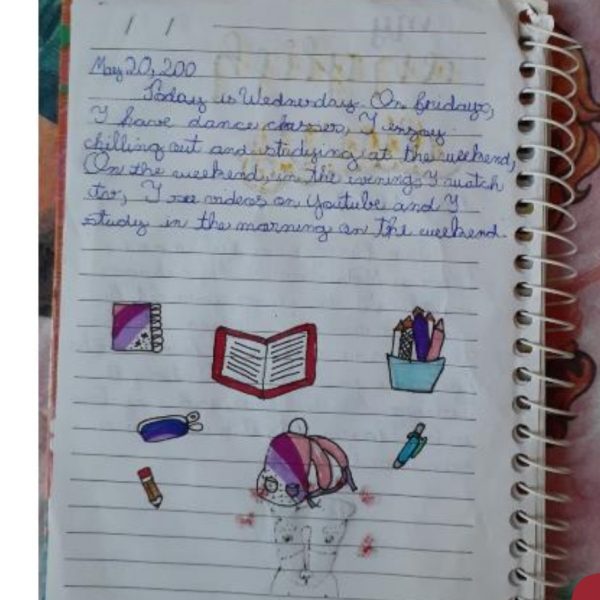 May 20, 200
Today is Wednesday. On fridays,
I have dance classes, I enjoy
chilling out and studying at the weekend,
On the weekend, in the evenings I watch
tv, I see videos on youtube and I
study in the morning on the weekend.